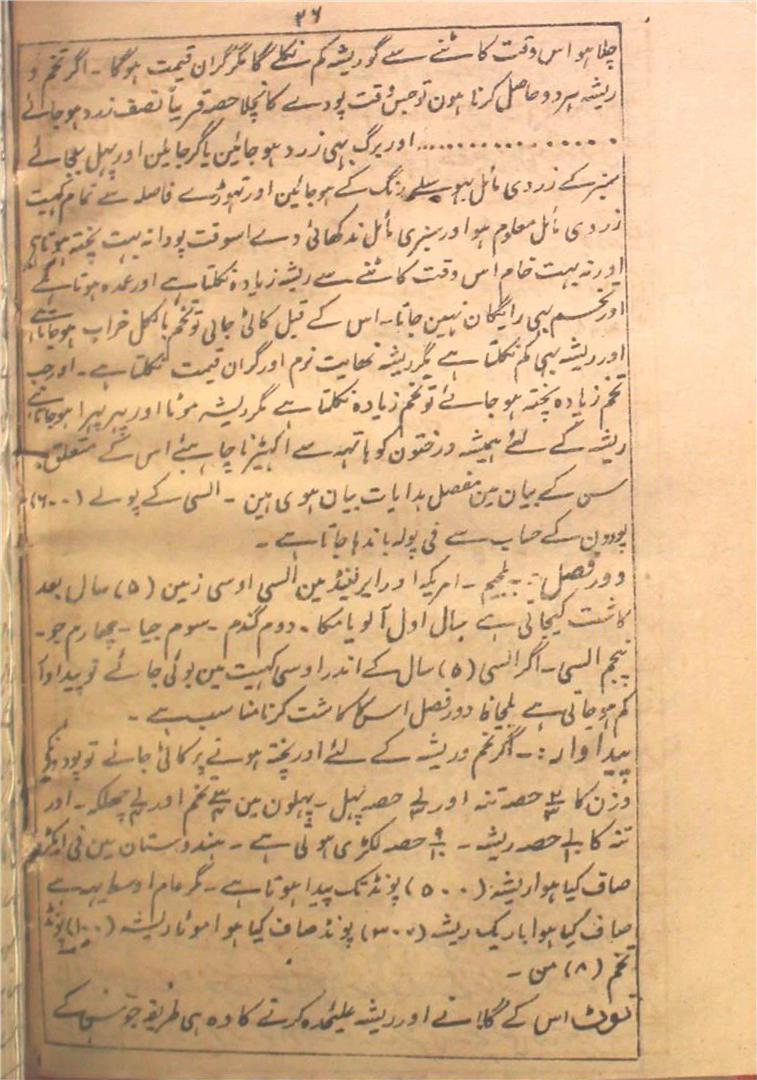 ۳۶
چلا ہو اس وقت کاٹنے سے گو ریشہ کم نکلے گا مگر گران قیمت ہوگا ۔ اگر تخم و
ریشہ ہر دو حاصل کرنا ہون تو جس وقت پودے کا نچلا حصہ قریباً نصف زرد ہو جائے
................ اور برگ بہی زرد ہو جائین یا گر جائین اور پہل بجائے
سبز کے زردی مائل رنگ کے ہو جائین اور تہوڑے فاصلہ سے تمام کہیت
زردی مائل معلوم ہو اور سبزی مائل ندکھائی دے اسوقت پودا نہ بہت پختہ ہوتا ہے
اور نہ بہت خام اس وقت کاٹنے سے ریشہ زیادہ نکلتا ہے اور عمدہ ہوتا ہے
اور تخم بہی رائگان نہین جاتا۔ اس کے قبل کاٹی جائی تو تخم بالکل خراب ہو جاتا ہے
اور ریشہ بہی کم نکلتا ہے مگر ریشہ نہایت نرم اور گران قیمت نکلتا ہے ۔ اور جب
تخم زیادہ پختہ ہو جائے تو تخم زیادہ نکلتا ہے مگر ریشہ موٹا اور پہر پہرا ہو جاتا ہے
ریشہ کے لئے ہمیشہ درختون کو ہاتہہ سے اکہیڑنا چاہیئے اس کے متعلق
سن کے بیان مین مفصل ہدایات بیان ہوی ہین ۔ السی کے پولے (۶۰۰)
پودون کے حساب سے فی پولہ باندہا جاتا ہے ۔
دور فصل :۔ بلجیم ۔ امریکہ اور ایرلینڈ مین السی اوسی زمین (۵) سال بعد
کاشت کیجاتی ہے سال اول آلو یا مکا ۔ دوم گندم ۔ سوم جیا ۔ چہارم جو۔
پنجم السی ۔ اگر السی (۵) سال کے اندر اوسی کہیت مین بوئی جائے تو پیداوار
کم ہو جاتی ہے بلحاظ دور فصل اسکا کاشت کرنا مناسب ہے ۔
پیداوار :۔ اگر تخم و ریشہ کے لئے اور پختہ ہونے پر کاٹی جائے تو پودونکے
وزن کا حصہ تنہ اور حصہ پہل ۔ پہلون مین تخم اور چہلکہ ۔ اور
تنہ کا حصہ ریشہ ۔ حصہ لکڑی ہوتی ہے ۔ ہندوستان مین فی ایکڑ
صاف کیا ہوا ریشہ (۵۰۰) پونڈ تک پیدا ہوتا ہے ۔ مگر عام اوسط یہہ ہے
صاف کیا ہوا باریک ریشہ (۳۰۰) پونڈ صاف کیا ہوا موٹا ریشہ (۱۰۰) پونڈ
تخم (۸) من ۔
نوٹ اس کے گلانے اور ریشہ علیٰحدہ کرنے کا وہ ہی طریقہ جو سن کے